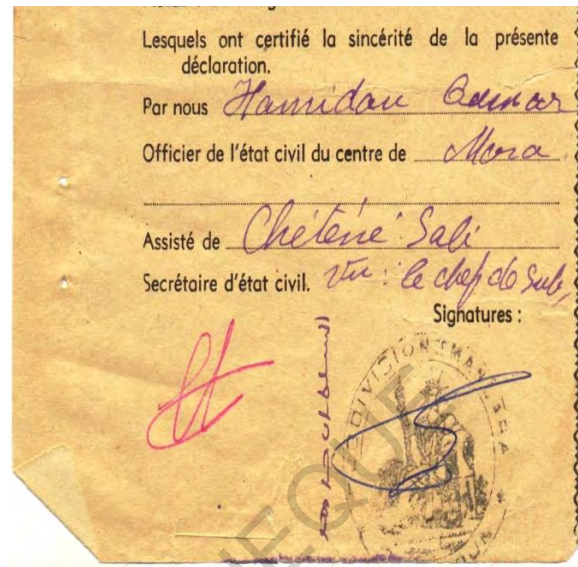 Lesquels ont certifié la sincérité de la présente
déclaration.
Par nous Hamidou Oumar
Officier de l'état civil du centre de Mora
Assisté de Chétené Sali
Secrétaire d'état civil. Vu : le chef de Sub,
Signatures :
DIVISION